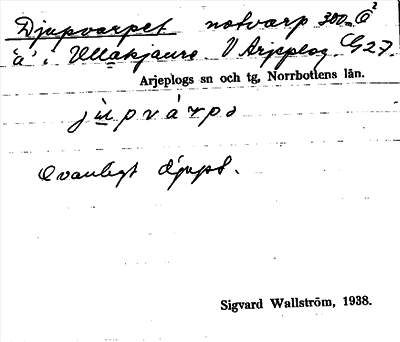 Djupvarpet notvarp 300 m. Ö²
"a" i Ullakjaure. V Arjeplog. G27.
Arjeplogs sn och tg, Norrbottens län.
jʉpvárpə
Ovanligt djupt.
Sigvard Wallström, 1938.